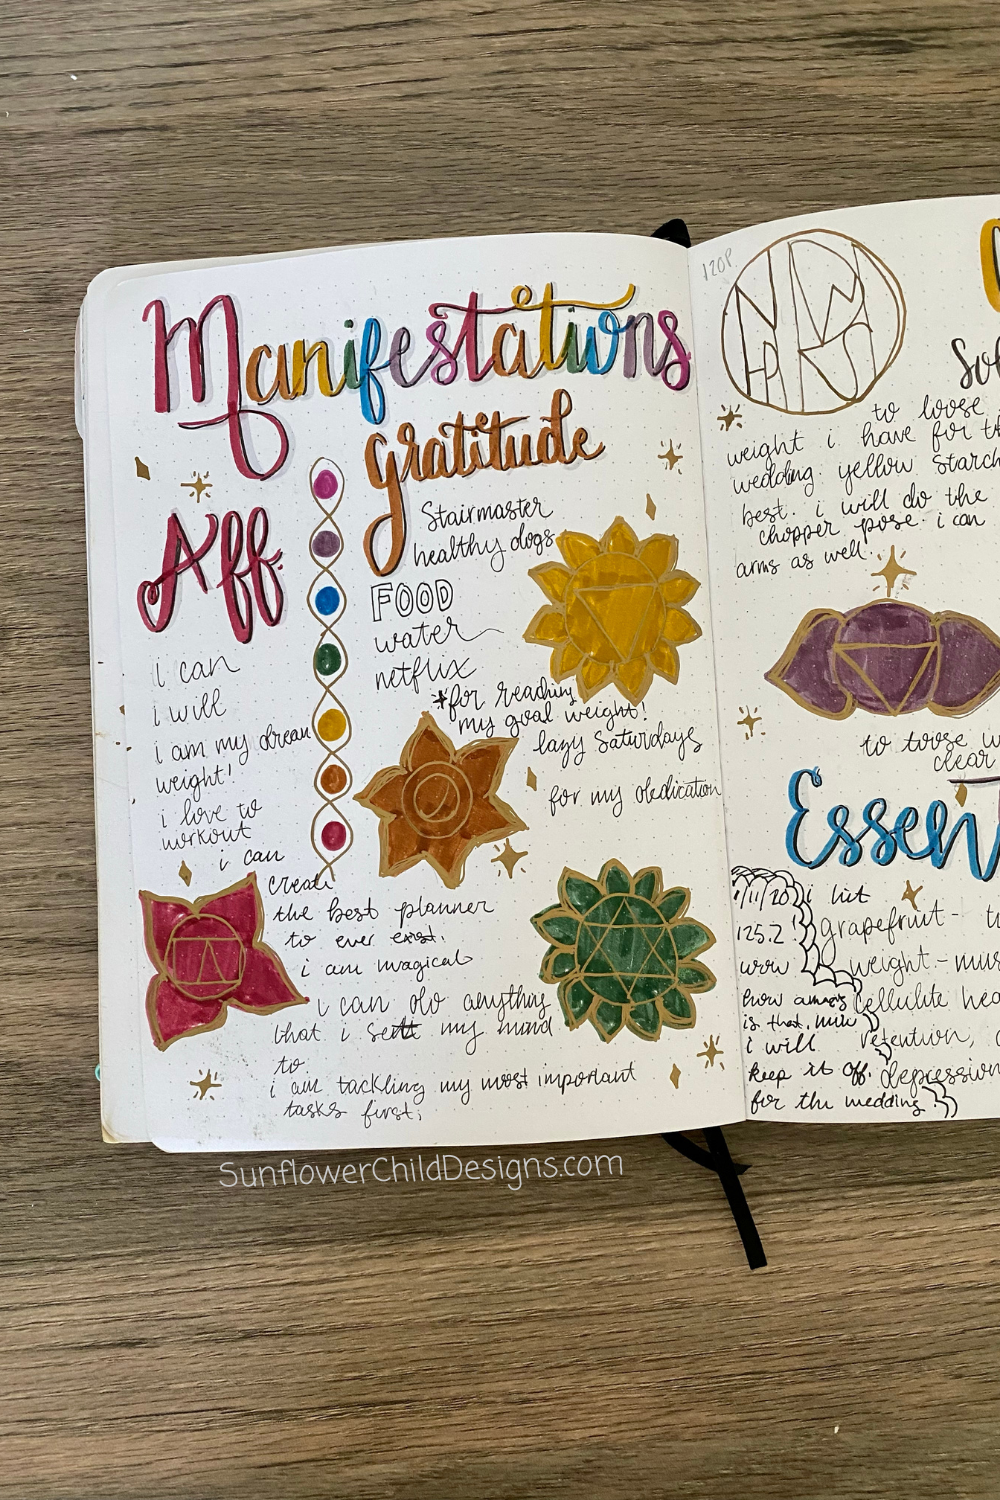 Manifestations
gratitude
Stairmaster
healthy dogs
FOOD
water
netflix
*for reaching
my goal weight!
lazy Saturdays
for my dedication
Aff.
i can
i will
i am my dream
weight!
i love to
workout
i can
create
the best planner
to ever exist.
i am magical
i can do anything
that i sett my mind
to.
i am tackling my most important
tasks first.
120P
to loose
weight i have for th
wedding. yellow starch
best. i will do the
chopper pose. i can
arms as well.
to toose w
clear
Essen
1/11/20 i hit
125.2!
wow
how amazing
is that. now
i will
keep it off.
for the wedding.
grapefruit - t
weight - mus
Cellulite hea
retention,
depression
SunflowerChildDesigns.com